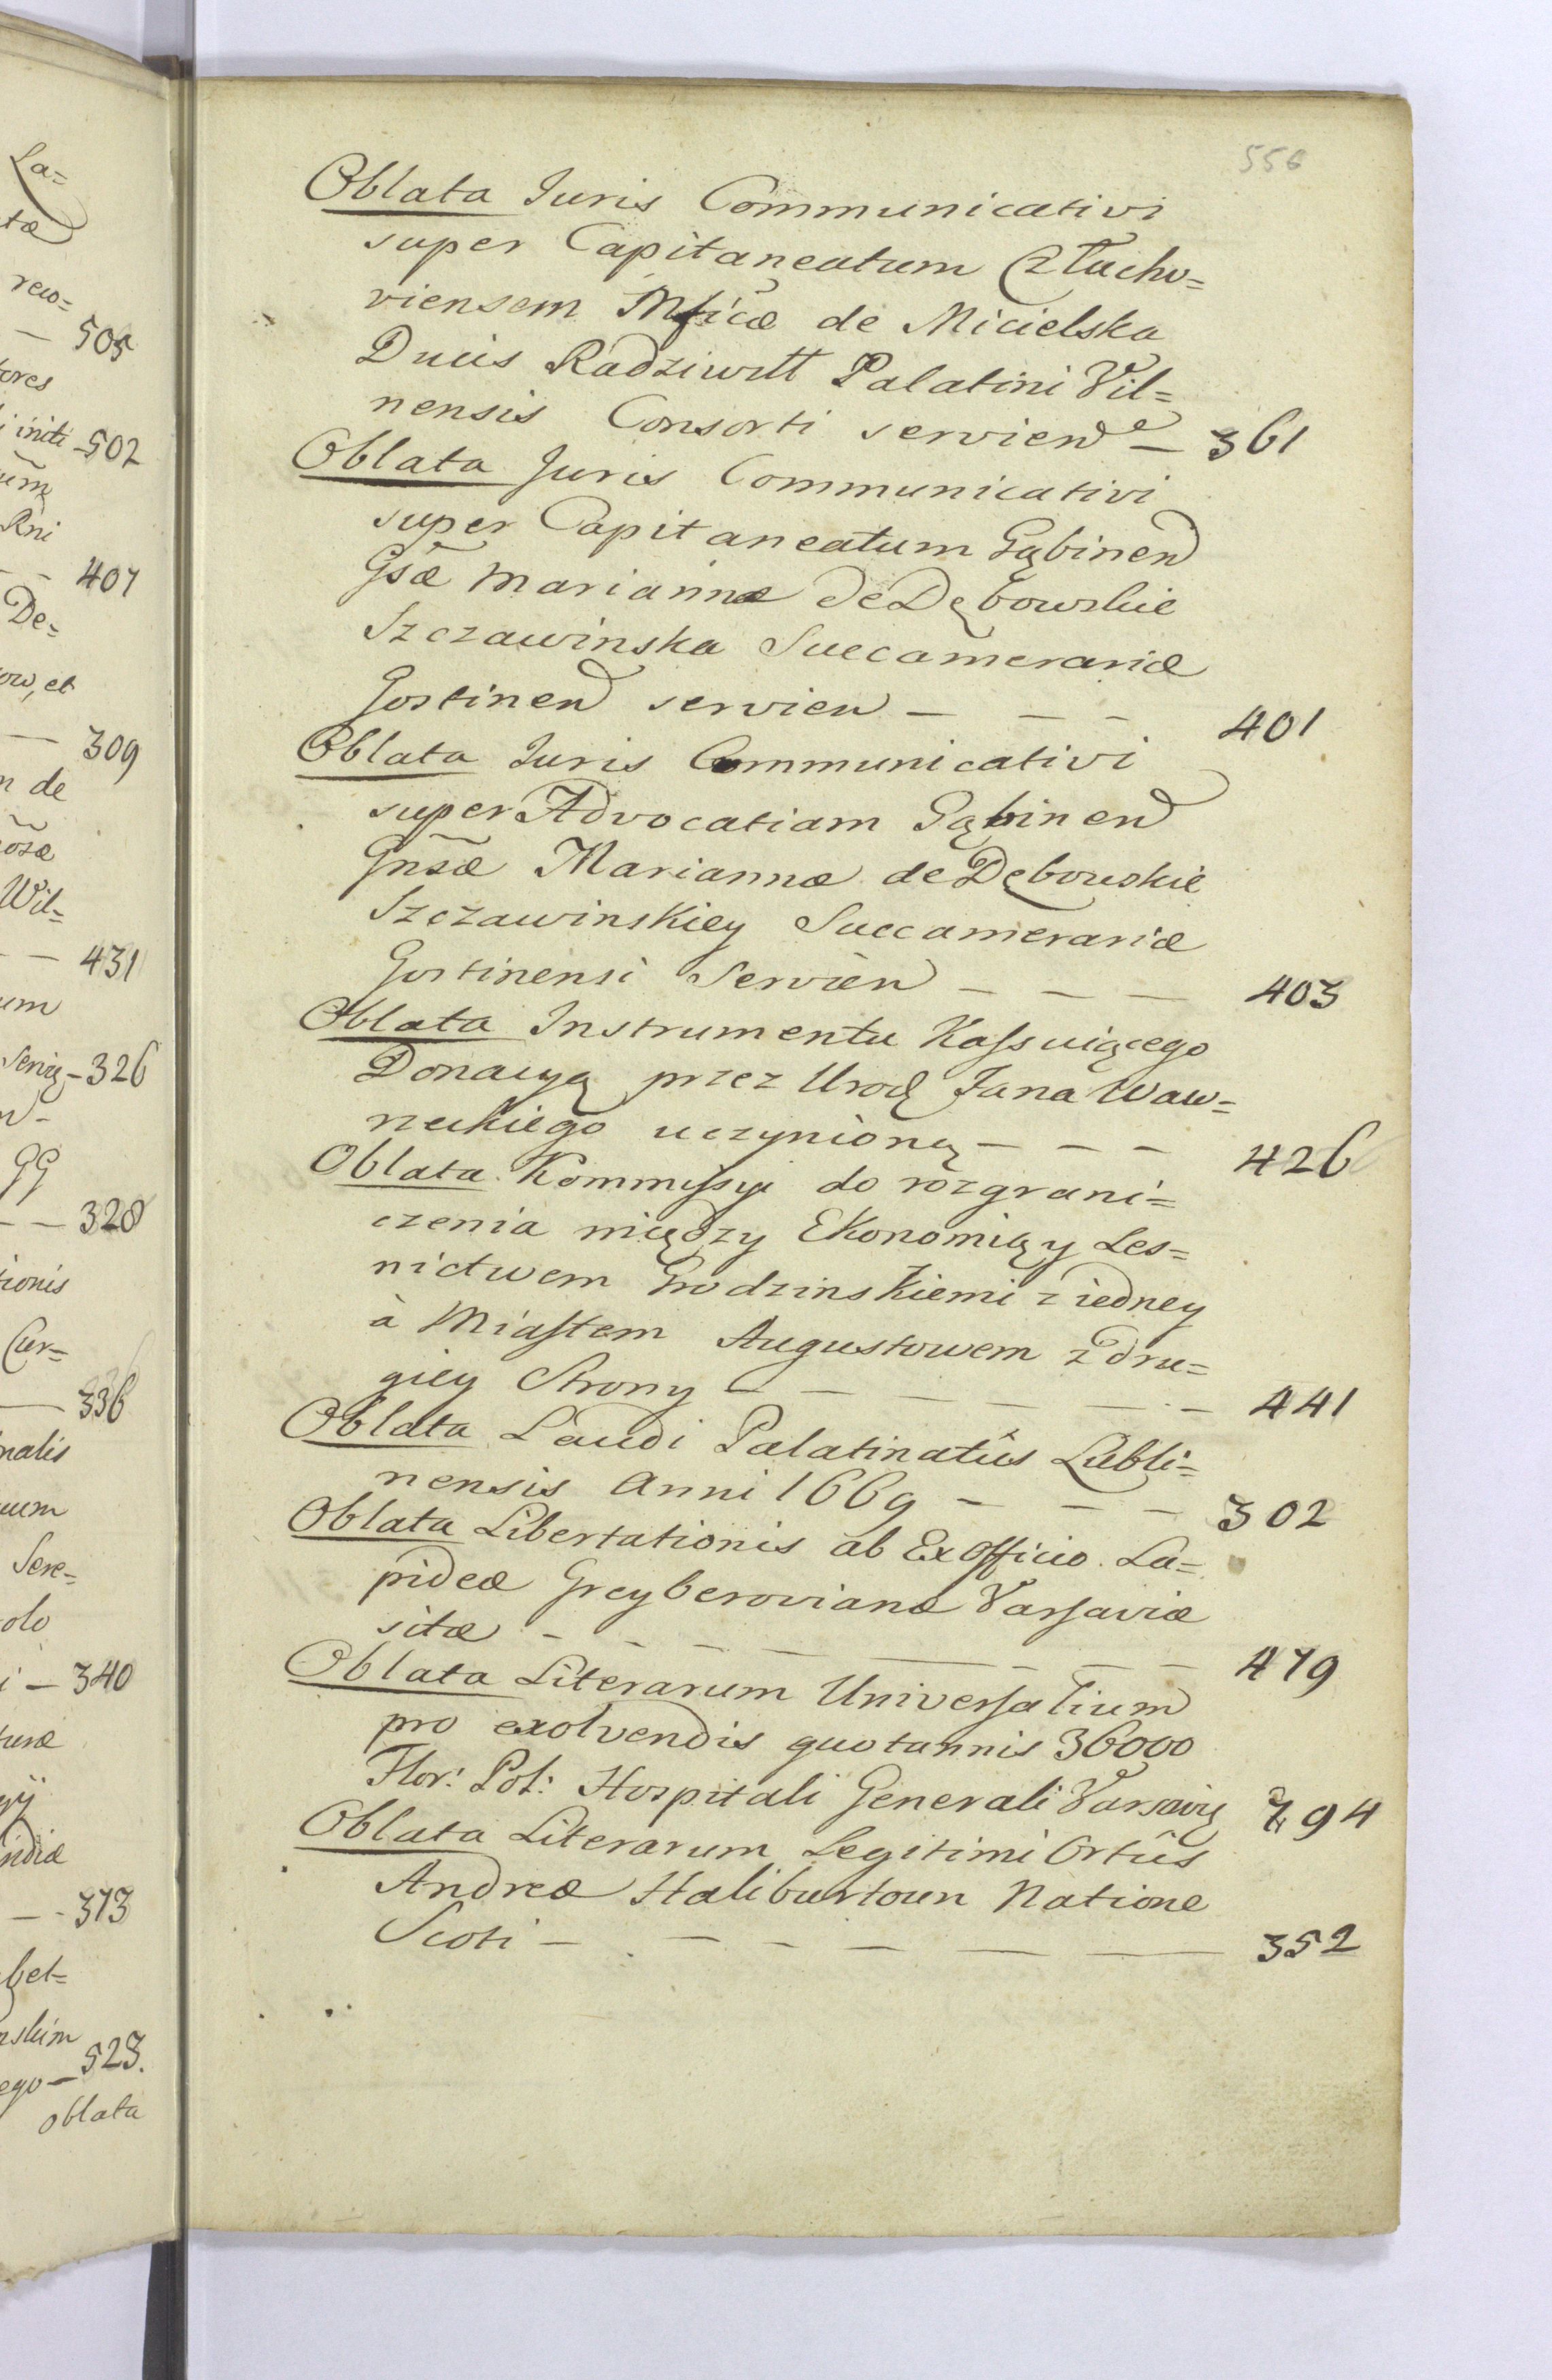 La=
ta
rew=
— 505
tores
i initi - 502
um
Rni
- - 407
De=
ow, et
— 309
n de
osæ
Wil=
- — 431
um
Senię - 326
w -
GG
- — 328
tionis
Cur=
— 336
nalis
uum
Sere=
olo
i — 340
turæ
yij
ndiæ
— - 373
bet=
nskim
ego — 523.
oblata
556
Oblata Juris Communicativi
super Capitaneatum Człucho=
viensem Mficæ de Micielska
Ducis Radziwiłł Palatini Vil=
nensis Consorti serviend — 361
Oblata Juris Communicativi
super Capitaneatum Gąbinen
Gsæ Mariannæ de Dębowskie
Szczawinska Succamerariæ
Gostinen servien — — — 401
Oblata Juris Communicativi
super Advocatiam Gąbinen
Gnsæ Mariannæ de Dębowskie
Szczawinskiey Succamerariæ
Gostinensi Servien — — — 403
Oblata Instrumentu Kassuiącego
Donacyą przez Urod Jana Waw=
rzeckiego uczynioną — — — 426
Oblata Kommissyi do rozgrani=
czenia między Ekonomią y Les=
nictwem Grodzinskiemi z iedney
à Miastem Augustowem z dru=
giey Strony — — — — — 441
Oblata Laudi Palatinatûs Lubli=
nensis Anni 1669 — — — 302
Oblata Libertationis ab Ex Officio La=
pideæ Greyberovianæ Varsaviæ
sitæ - - - — — — — — 479
Oblata Literarum Universalium
pro exolvendis quotannis 36000
Flor: Pol: Hospitali Generali Varsavię 294
Oblata Literarum Legitimi Ortûs
Andreæ Haliburtoun Natione
Scoti — — — — — — 352